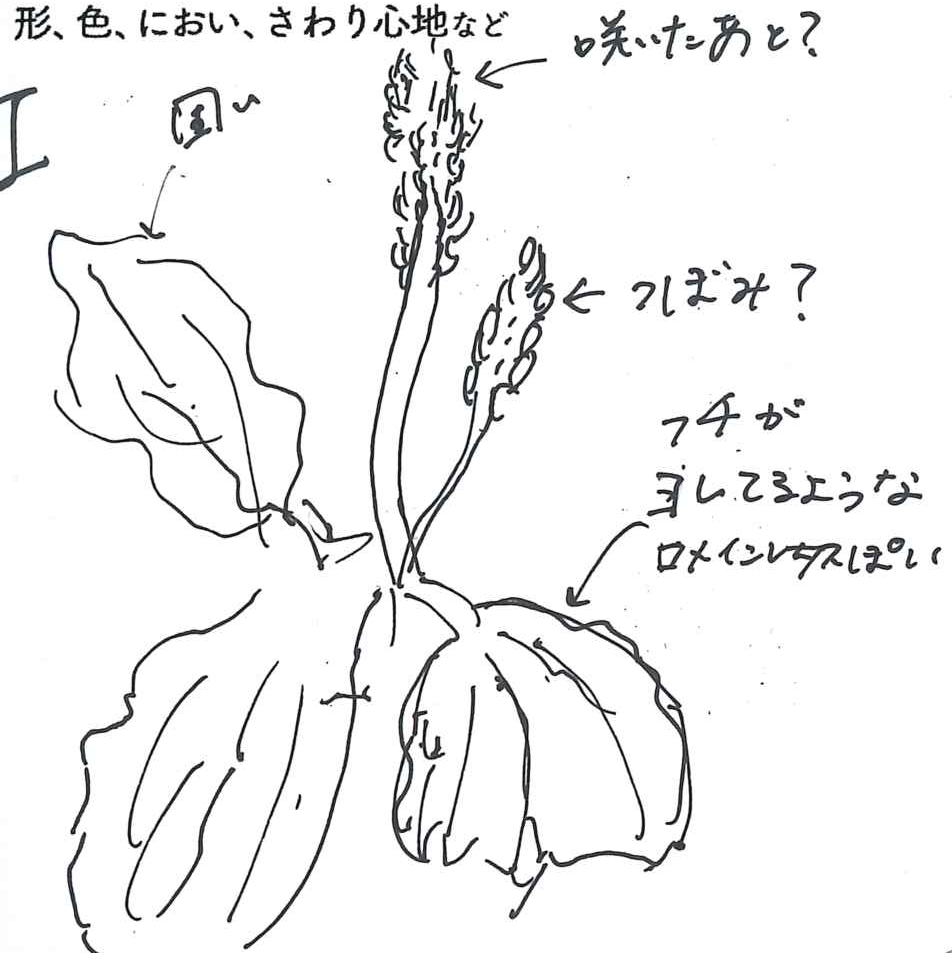 形、色、におい、さわり心地など
咲いたあと?
固い
つぼみ?
フチが
ヨレてるような
ロメインレタスぽい